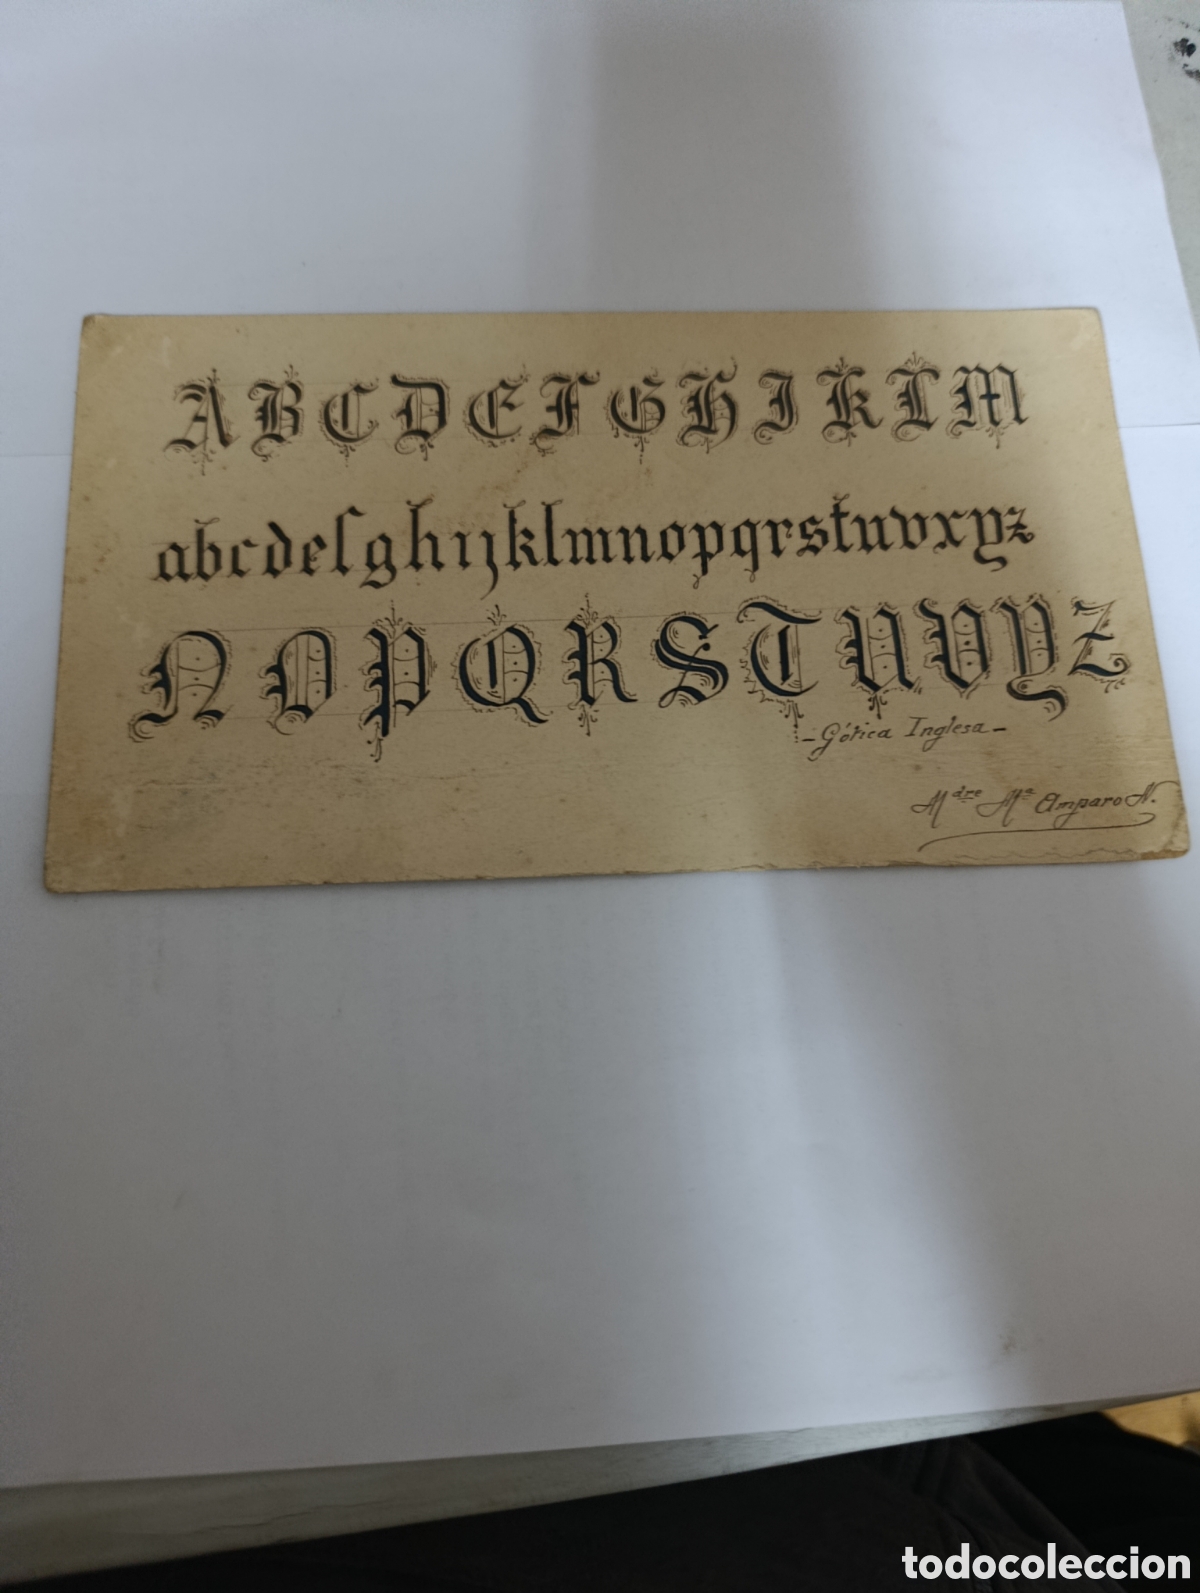 A B C D E F G H I K L M
abcdefghijklmnopqrstuvxyz
N O P Q R S T U V Y Z
- Gótica Inglesa -
Mdre Mª Amparo N.
todocoleccion